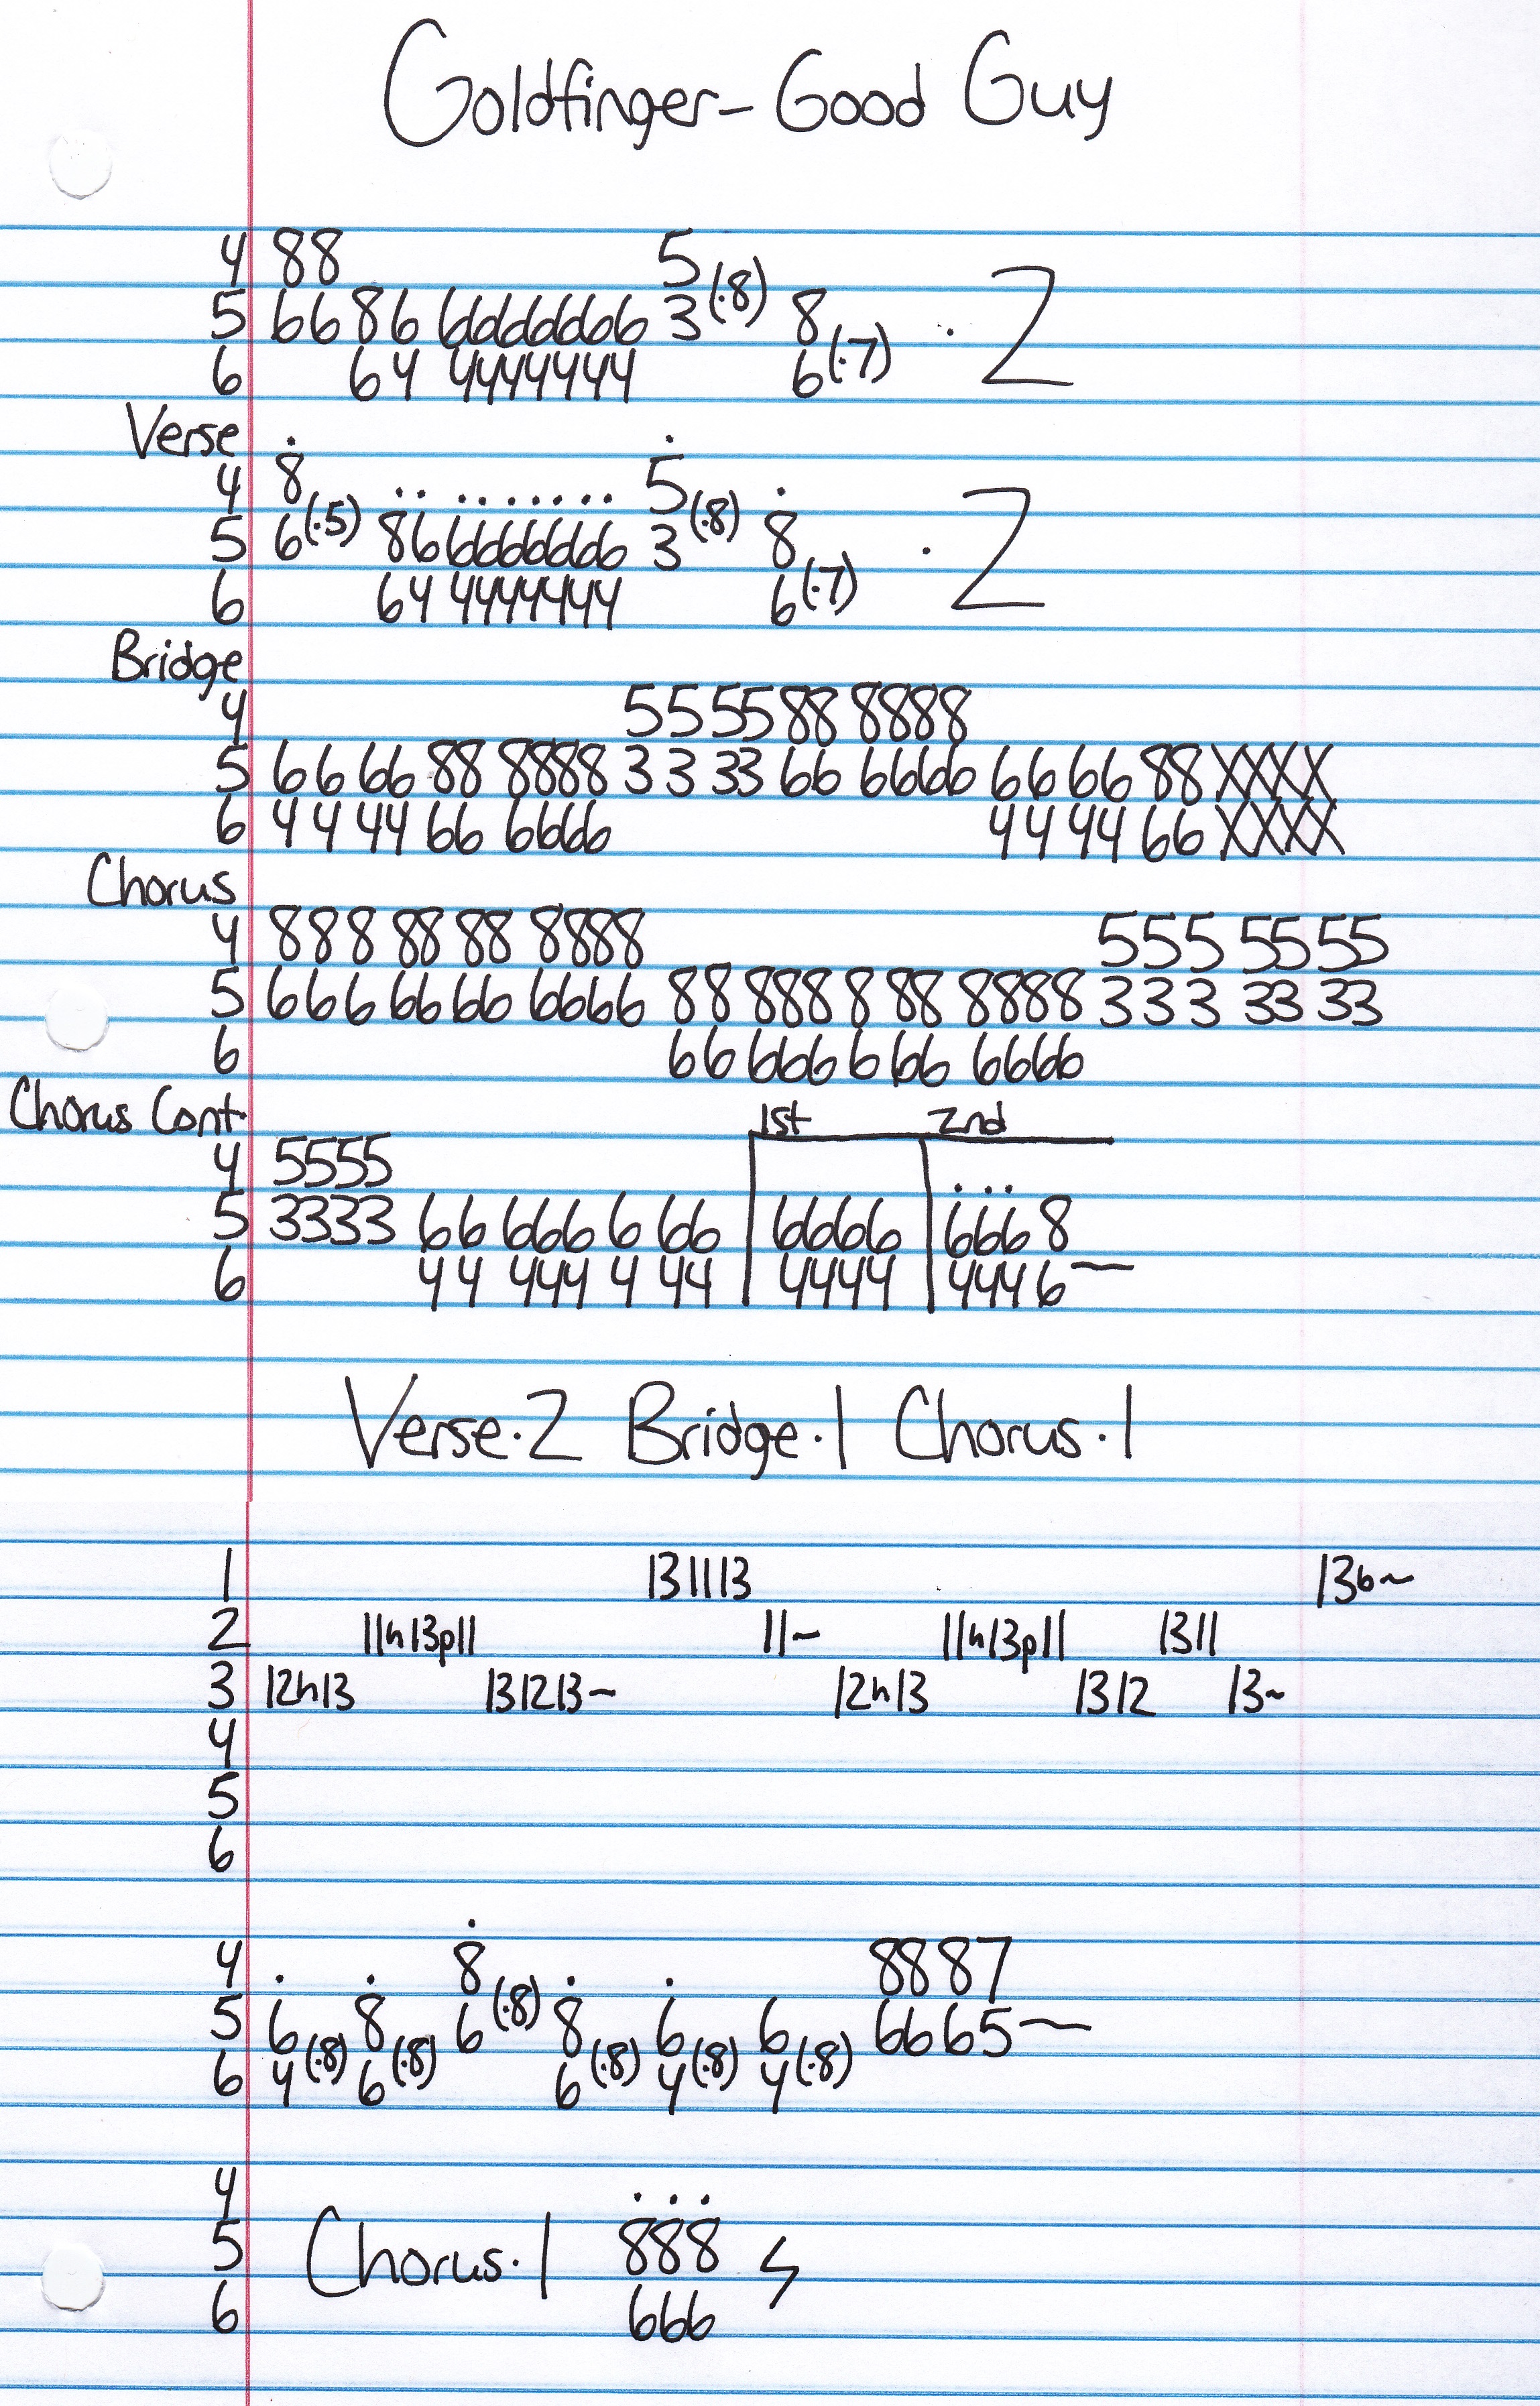 Goldfinger - Good Guy
4 88 5
5 66 86 6666666 3 (·8) 8 · 2
6 64 4444444 6 (·7)
Verse
4 8 5
5 6 (·5) 86 6666666 3 (·8) 8 · 2
6 64 4444444 6 (·7)
Bridge
4 5 5 55 88 8888
5 6 6 66 88 8888 3 3 33 66 6666 66 66 88 XXXX
6 4 4 44 66 6666 44 44 66 XXXX
Chorus
4 8 8 8 88 88 8888 5 5 5 55 55
5 6 6 6 66 66 6666 88 888 8 88 8888 3 3 3 33 33
6 66 666 6 66 6666
Chorus Cont. 1st 2nd
4 5555
5 3333 66 666 6 66 6666 6668
6 44 444 4 44 4444 4446~
Verse·2 Bridge·1 Chorus·1
1 131113 13b~
2 11h13p11 11~ 11h13p11 1311
3 12h13 131213~ 12h13 1312 13~
4
5
6
4 8 8887
5 6 8 6 (·8) 8 6 6 6665~
6 4 (·8) 6 (·8) 6 (·8) 4 (·8) 4 (·8)
4
5 Chorus·1 888
6 666